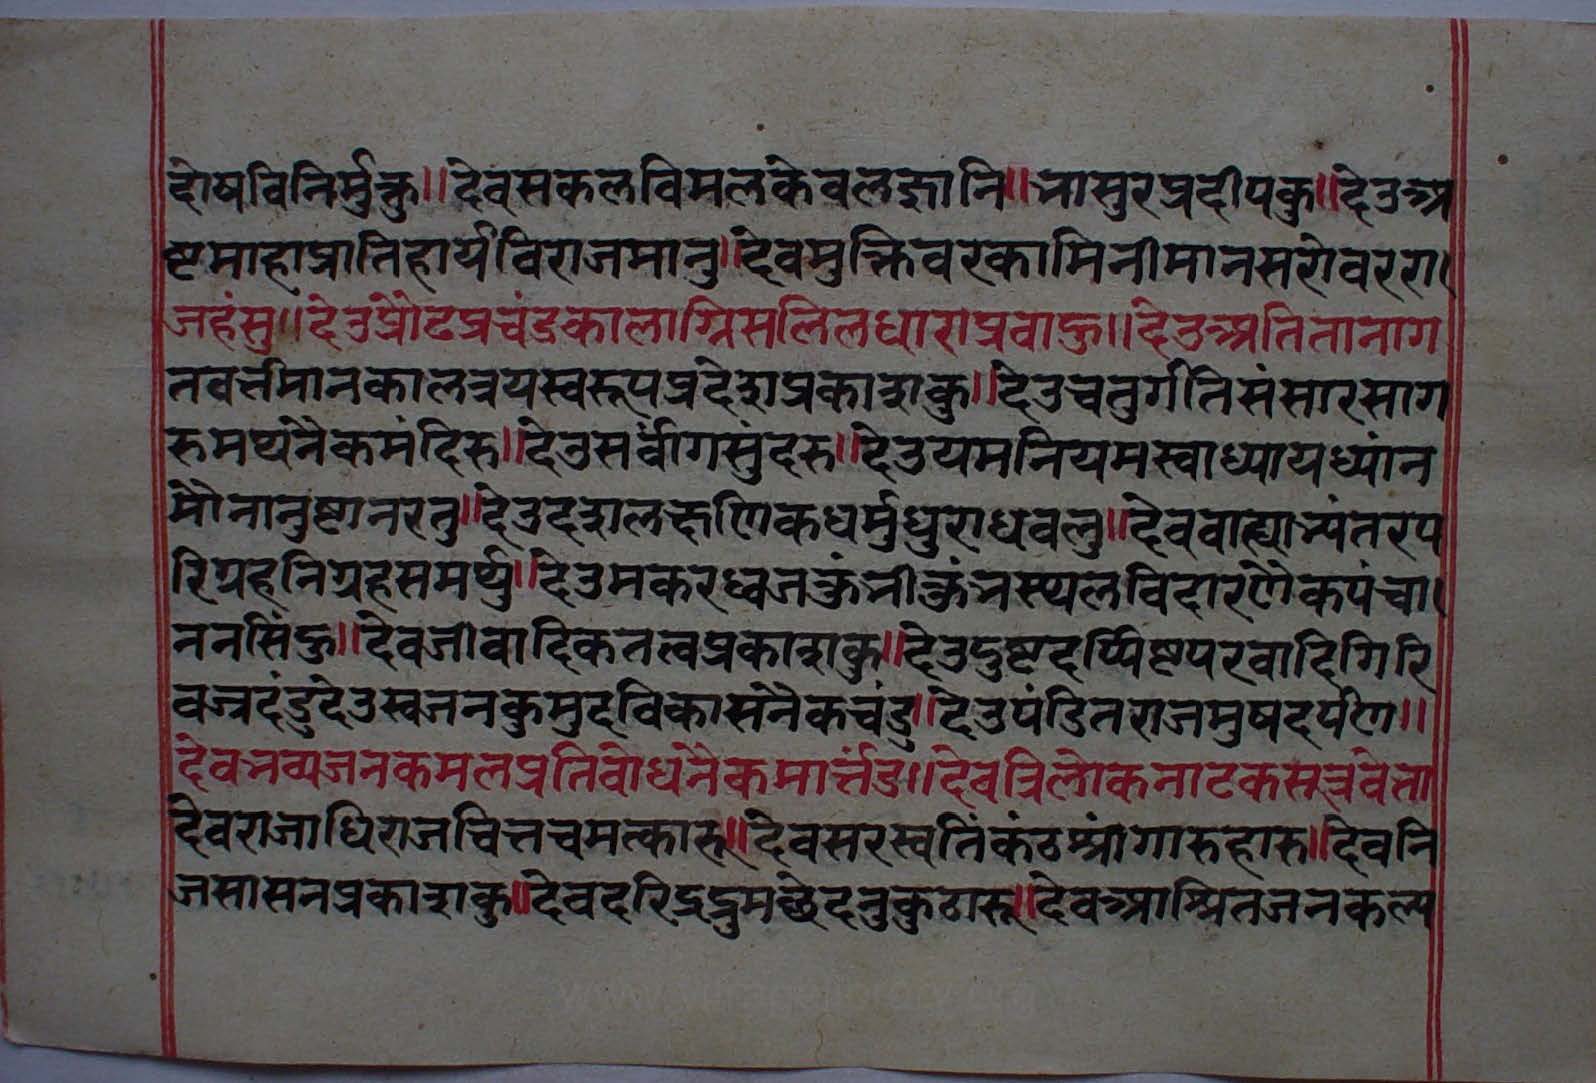 दोषविनिर्मुक्तु॥देवसकलविमलकेवलज्ञानि॥भासुरप्रदीपकु॥देउअ
ष्टमाहाप्रातिहार्यविराजमानु॥देवमुक्तिवरकामिनीमानसरोवररा
जहंसु॥देउप्रौढप्रचंडकालाग्निसलिलधाराप्रवाहु॥देउअतितानाग
तवर्त्तमानकालत्रयस्वरूपप्रदेशप्रकाशकु॥देउचतुर्गतिसंसारसाग
रुमथनैकमंदिरु॥देउसर्वांगसुंदरु॥देउयमनियमस्वाध्यायध्यांन
मौनानुष्ठानरतु॥देउदशलक्षणिकधर्मुधुराधवलु॥देववाह्याभ्यंतरप
रिग्रहनिग्रहसमर्थु॥देउमकरध्वजकुंभीकुंभस्थलविदारणैकपंचा
ननसिंहु॥देवजीवादिकतत्वप्रकाशकु॥देउदुष्टदर्प्पिष्टपरवादिगिरि
वज्रदंडुदेउस्वजनकुमुदविकासनैकचंद्रु॥देउपंडितराजमुषदर्पण॥
देवभव्यजनकमलप्रतिवोधनैकमार्त्तंड॥देवत्रिलोकनाटकसूत्रवेता
देवराजाधिराजचित्तचमत्कारू॥देवसरस्वतिंकंठश्रांगारुहारु॥देवनि
जसासनप्रकाशकु॥देवदरिद्रद्रुमछेदनुकुठारू॥देवआश्रितजनकल्प